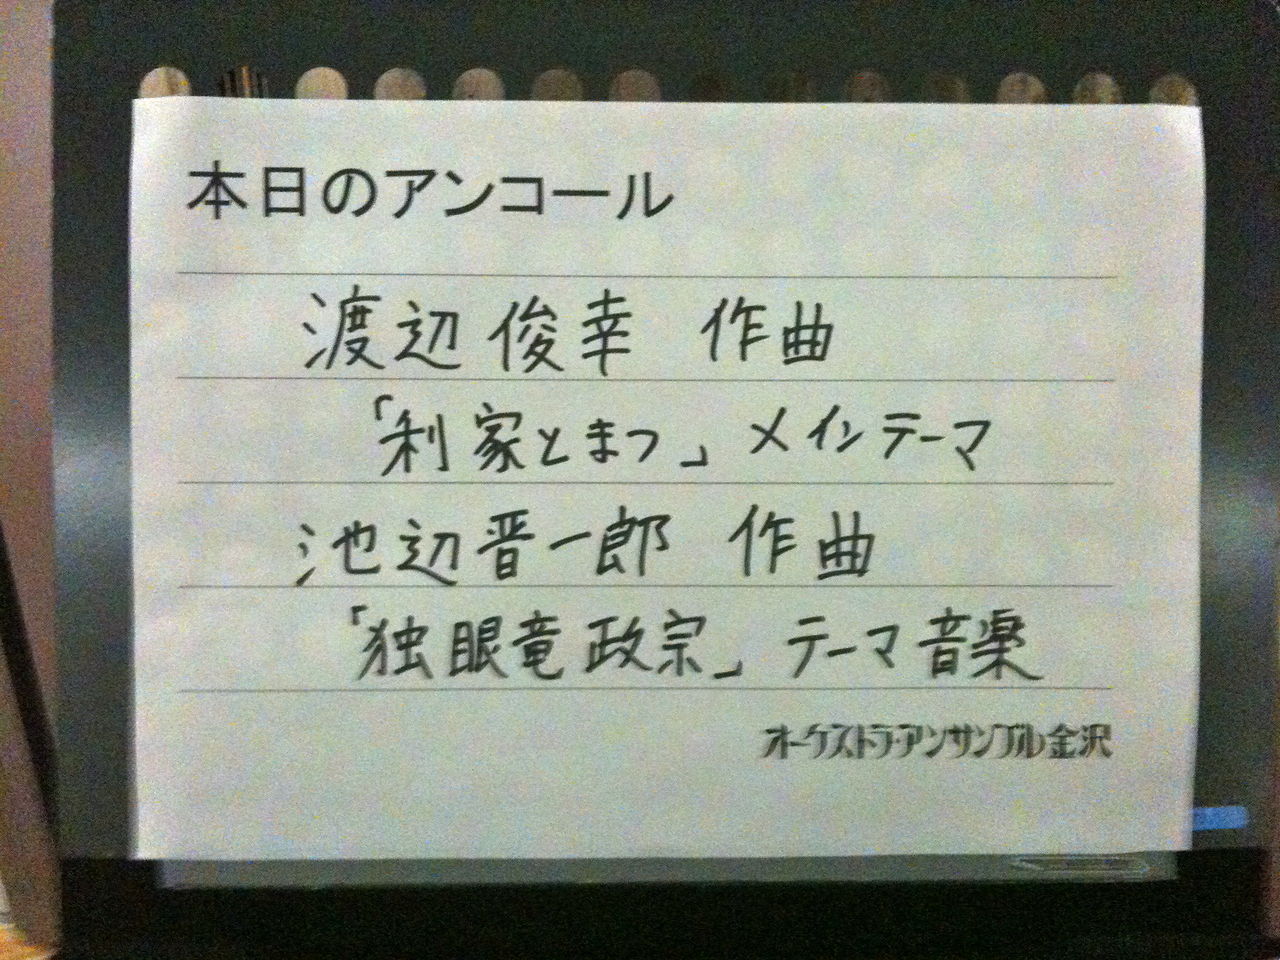 本日のアンコール
渡辺俊幸 作曲
「利家とまつ」メインテーマ
池辺晋一郎 作曲
「独眼竜政宗」テーマ音楽
オーケストラ・アンサンブル金沢